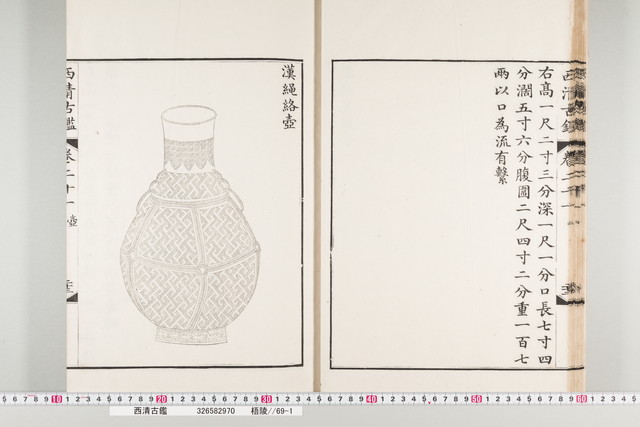 右高一尺二寸三分深一尺一分口長七寸四
分濶五寸六分腹圍二尺四寸二分重一百七
兩以口為流有繫
漢繩絡壺
西清古鑑 卷二十一 壺
1 2 3 4 5 6 7 8 9 10 1 2 3 4 5 6 7 8 9 20 1 2 3 4 5 6 7 8 9 30 1 2 3 4 5 6 7 8 9 40 1 2 3 4 5 6 7 8 9 50 1 2 3 4 5 6 7 8 9 60
西清古鑑 326582970 梧陵//69-1